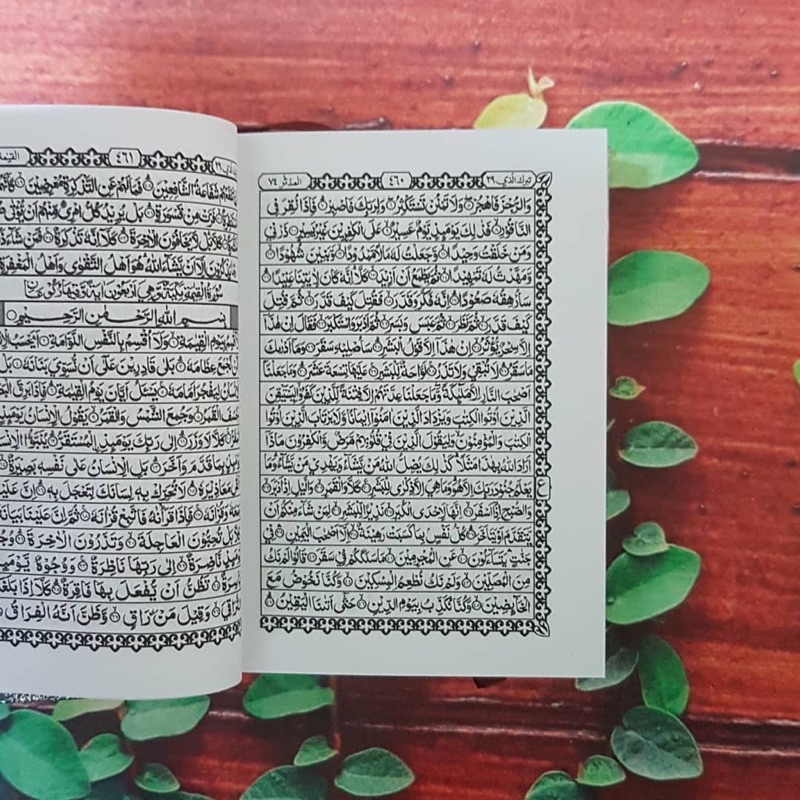 تبرك الذي ٢٩ ٤٦٠ المدثر ٧٤
وَالرُّجْزَ فَاهْجُرْ ۝ وَلَا تَمْنُنْ تَسْتَكْثِرُ ۝ وَلِرَبِّكَ فَاصْبِرْ ۝ فَإِذَا نُقِرَ فِي
النَّاقُورِ ۝ فَذَٰلِكَ يَوْمَئِذٍ يَوْمٌ عَسِيرٌ ۝ عَلَى الْكٰفِرِينَ غَيْرُ يَسِيرٍ ۝ ذَرْنِي
وَمَنْ خَلَقْتُ وَحِيدًا ۝ وَجَعَلْتُ لَهُ مَالًا مَّمْدُودًا ۝ وَبَنِينَ شُهُودًا ۝
وَمَهَّدْتُ لَهُ تَمْهِيدًا ۝ ثُمَّ يَطْمَعُ أَنْ أَزِيدَ ۝ كَلَّا إِنَّهُ كَانَ لِاٰيٰتِنَا عَنِيدًا ۝
سَأُرْهِقُهُ صَعُودًا ۝ إِنَّهُ فَكَّرَ وَقَدَّرَ ۝ فَقُتِلَ كَيْفَ قَدَّرَ ۝ ثُمَّ قُتِلَ
كَيْفَ قَدَّرَ ۝ ثُمَّ نَظَرَ ۝ ثُمَّ عَبَسَ وَبَسَرَ ۝ ثُمَّ أَدْبَرَ وَاسْتَكْبَرَ ۝ فَقَالَ إِنْ هٰذَا
إِلَّا سِحْرٌ يُّؤْثَرُ ۝ إِنْ هٰذَا إِلَّا قَوْلُ الْبَشَرِ ۝ سَأُصْلِيهِ سَقَرَ ۝ وَمَا أَدْرٰىكَ
مَا سَقَرُ ۝ لَا تُبْقِي وَلَا تَذَرُ ۝ لَوَّاحَةٌ لِّلْبَشَرِ ۝ عَلَيْهَا تِسْعَةَ عَشَرَ ۝ وَمَا جَعَلْنَا
أَصْحٰبَ النَّارِ إِلَّا مَلٰئِكَةً وَّمَا جَعَلْنَا عِدَّتَهُمْ إِلَّا فِتْنَةً لِّلَّذِينَ كَفَرُوا لِيَسْتَيْقِنَ
الَّذِينَ أُوتُوا الْكِتٰبَ وَيَزْدَادَ الَّذِينَ اٰمَنُوا إِيمَانًا وَّلَا يَرْتَابَ الَّذِينَ أُوتُوا
الْكِتٰبَ وَالْمُؤْمِنُونَ وَلِيَقُولَ الَّذِينَ فِي قُلُوبِهِمْ مَّرَضٌ وَّالْكٰفِرُونَ مَاذَا
أَرَادَ اللّٰهُ بِهٰذَا مَثَلًا كَذٰلِكَ يُضِلُّ اللّٰهُ مَنْ يَّشَاءُ وَيَهْدِي مَنْ يَّشَاءُ وَمَا
يَعْلَمُ جُنُودَ رَبِّكَ إِلَّا هُوَ وَمَا هِيَ إِلَّا ذِكْرٰى لِلْبَشَرِ ۝ كَلَّا وَالْقَمَرِ ۝ وَاللَّيْلِ إِذْ أَدْبَرَ ۝
وَالصُّبْحِ إِذَا أَسْفَرَ ۝ إِنَّهَا لَإِحْدَى الْكُبَرِ ۝ نَذِيرًا لِّلْبَشَرِ ۝ لِمَنْ شَاءَ مِنْكُمْ أَنْ
يَّتَقَدَّمَ أَوْ يَتَأَخَّرَ ۝ كُلُّ نَفْسٍ بِمَا كَسَبَتْ رَهِينَةٌ ۝ إِلَّا أَصْحٰبَ الْيَمِينِ ۝ فِي
جَنّٰتٍ يَتَسَاءَلُونَ ۝ عَنِ الْمُجْرِمِينَ ۝ مَا سَلَكَكُمْ فِي سَقَرَ ۝ قَالُوا لَمْ نَكُ
مِنَ الْمُصَلِّينَ ۝ وَلَمْ نَكُ نُطْعِمُ الْمِسْكِينَ ۝ وَكُنَّا نَخُوضُ مَعَ
الْخَائِضِينَ ۝ وَكُنَّا نُكَذِّبُ بِيَوْمِ الدِّينِ ۝ حَتّٰى أَتٰنَا الْيَقِينُ ۝
الذي ٢٩ ٤٦١ القيمة
شَفَاعَةُ الشَّافِعِينَ ۝ فَمَالَهُمْ عَنِ التَّذْكِرَةِ مُعْرِضِينَ ۝ كَأَنَّهُمْ
فَرَّتْ مِنْ قَسْوَرَةٍ ۝ بَلْ يُرِيدُ كُلُّ امْرِئٍ مِّنْهُمْ أَنْ يُّؤْتٰى
كَلَّا بَلْ لَّا يَخَافُونَ الْاٰخِرَةَ ۝ كَلَّا إِنَّهُ تَذْكِرَةٌ ۝ فَمَنْ شَاءَ
إِلَّا أَنْ يَّشَاءَ اللّٰهُ هُوَ أَهْلُ التَّقْوٰى وَأَهْلُ الْمَغْفِرَةِ
سورة القيمة مكية وهي اربعون اية وفيها ركوعان
بِسْمِ اللّٰهِ الرَّحْمٰنِ الرَّحِيمِ
بِيَوْمِ الْقِيٰمَةِ ۝ وَلَا أُقْسِمُ بِالنَّفْسِ اللَّوَّامَةِ ۝ أَيَحْسَبُ
نَجْمَعَ عِظَامَهُ ۝ بَلٰى قَادِرِينَ عَلٰى أَنْ نُّسَوِّيَ بَنَانَهُ ۝ بَلْ
لِيَفْجُرَ أَمَامَهُ ۝ يَسْئَلُ أَيَّانَ يَوْمُ الْقِيٰمَةِ ۝ فَإِذَا بَرِقَ
الْقَمَرُ ۝ وَجُمِعَ الشَّمْسُ وَالْقَمَرُ ۝ يَقُولُ الْإِنْسَانُ يَوْمَئِذٍ
كَلَّا لَا وَزَرَ ۝ إِلٰى رَبِّكَ يَوْمَئِذٍ الْمُسْتَقَرُّ ۝ يُنَبَّؤُا
بِمَا قَدَّمَ وَأَخَّرَ ۝ بَلِ الْإِنْسَانُ عَلٰى نَفْسِهِ بَصِيرَةٌ ۝
مَعَاذِيرَهُ ۝ لَا تُحَرِّكْ بِهِ لِسَانَكَ لِتَعْجَلَ بِهِ ۝ إِنَّ عَلَيْنَا
وَقُرْاٰنَهُ ۝ فَإِذَا قَرَأْنٰهُ فَاتَّبِعْ قُرْاٰنَهُ ۝ ثُمَّ إِنَّ عَلَيْنَا بَيَانَهُ
بَلْ تُحِبُّونَ الْعَاجِلَةَ ۝ وَتَذَرُونَ الْاٰخِرَةَ ۝ وُجُوهٌ
نَّاضِرَةٌ ۝ إِلٰى رَبِّهَا نَاظِرَةٌ ۝ وَوُجُوهٌ يَّوْمَئِذٍ
تَظُنُّ أَنْ يُّفْعَلَ بِهَا فَاقِرَةٌ ۝ كَلَّا إِذَا بَلَغَتِ
وَقِيلَ مَنْ رَاقٍ ۝ وَّظَنَّ أَنَّهُ الْفِرَاقُ